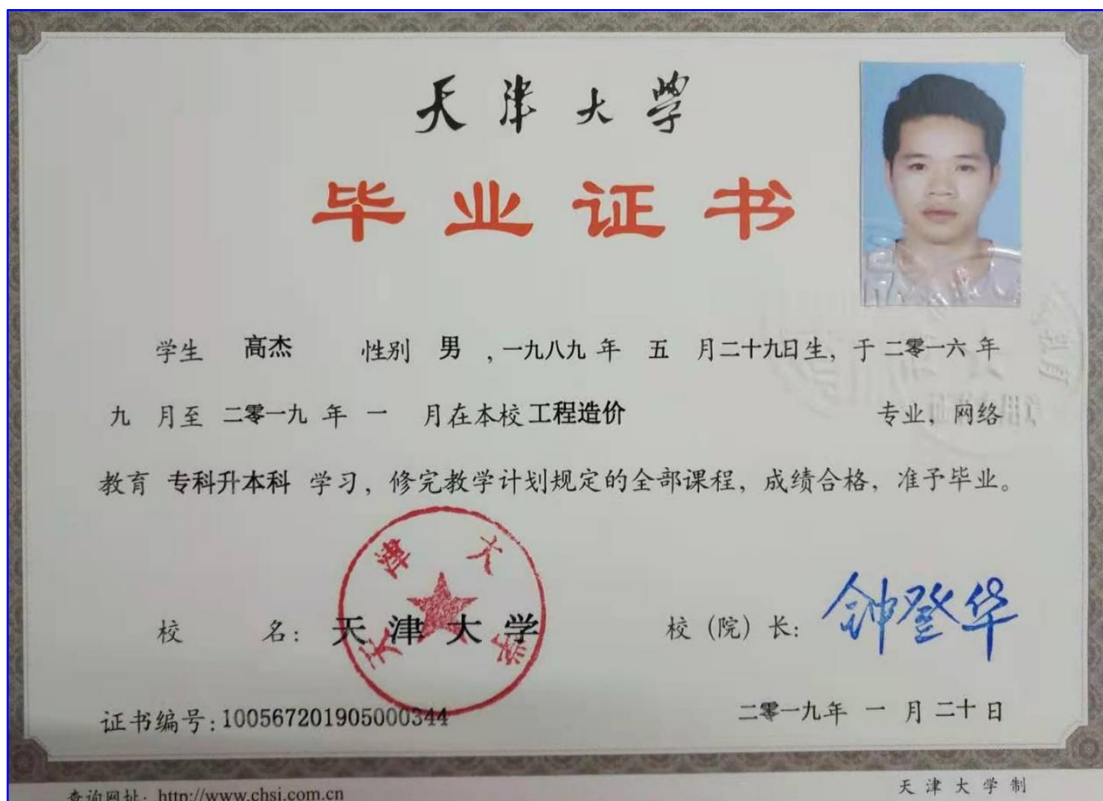 天津大學
毕业证书
学生 高杰 性别 男 ,一九八九 年 五 月二十九日生, 于 二零一六 年
九 月至 二零一九 年 一 月在本校 工程造价 专业, 网络
教育 专科升本科 学习, 修完教学计划规定的全部课程, 成绩合格, 准予毕业。
天津大学
校 名: 天津大学 校(院)长: 钟登华
证书编号:100567201905000344 二零一九年 一 月 二十 日
查询网址: http://www.chsi.com.cn 天津大学制